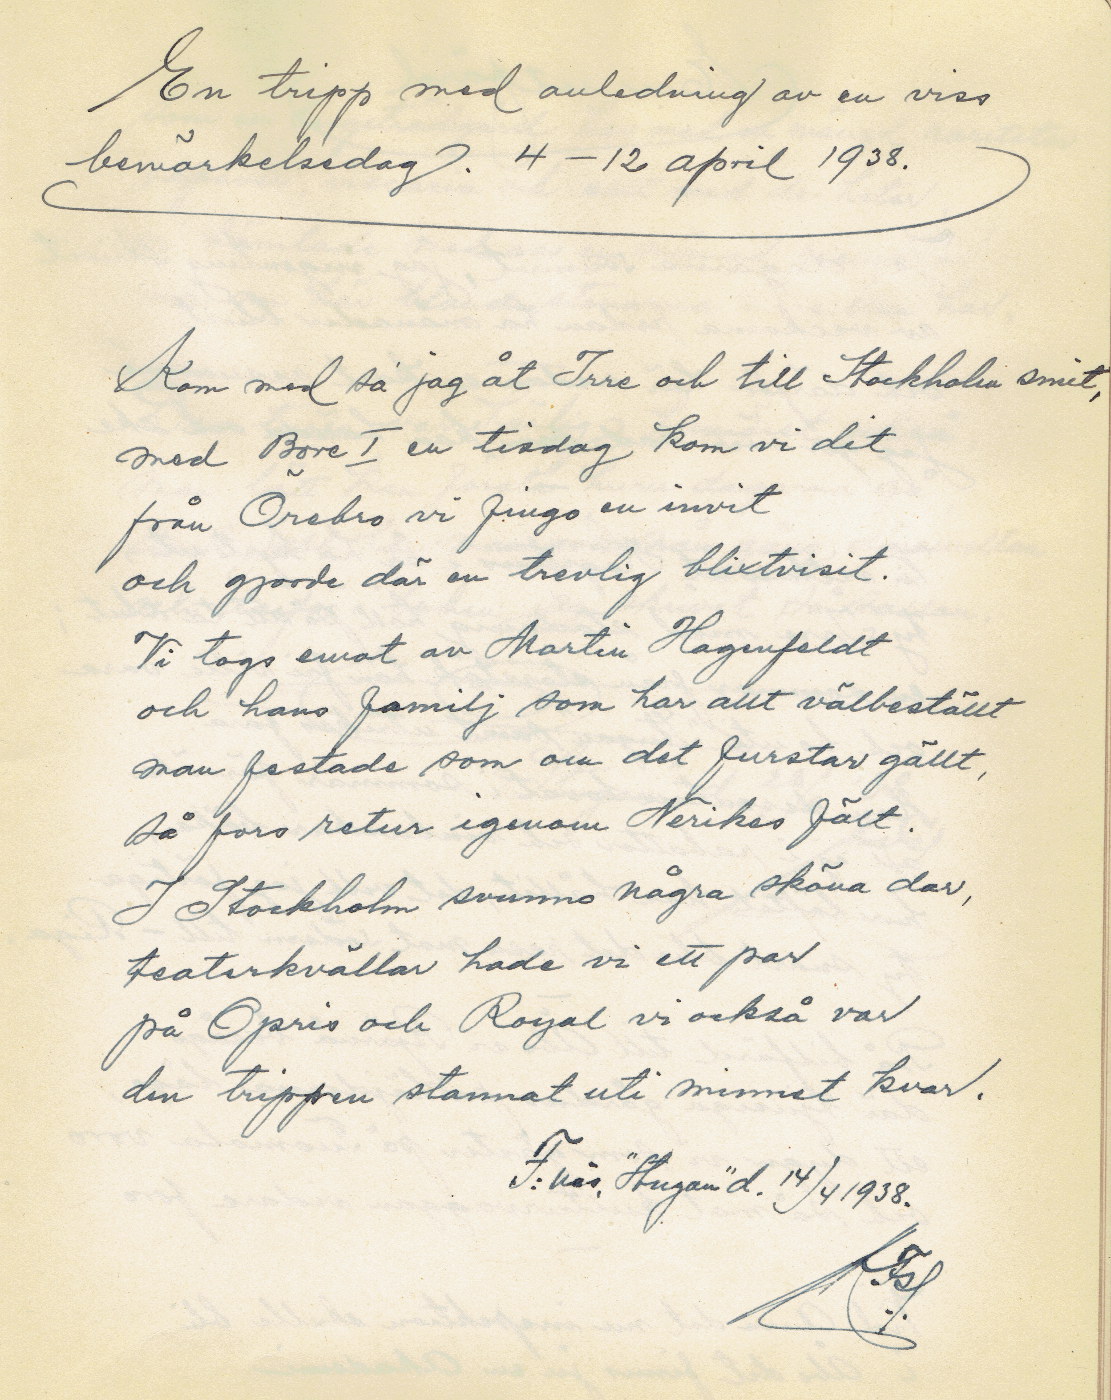 En tripp med anledning av en viss
bemärkelsedag. 4 – 12 april 1938.
Kom med sa jag åt Irre och till Stockholm smit,
med Bore I en tisdag kom vi dit
från Örebro vi fingo en invit
och gjorde där en trevlig blixtvisit.
Vi togs emot av Martin Hagenfeldt
och hans familj som har allt välbeställt
man festade som om det furstar gällt,
så fors retur igenom Nerikes fält.
I Stockholm svunno några sköna dar,
teaterkvällar hade vi ett par
på Opris och Royal vi också var
den trippen stannat uti minnet kvar.
F:näs, "Stugan" d. 14/4 1938.